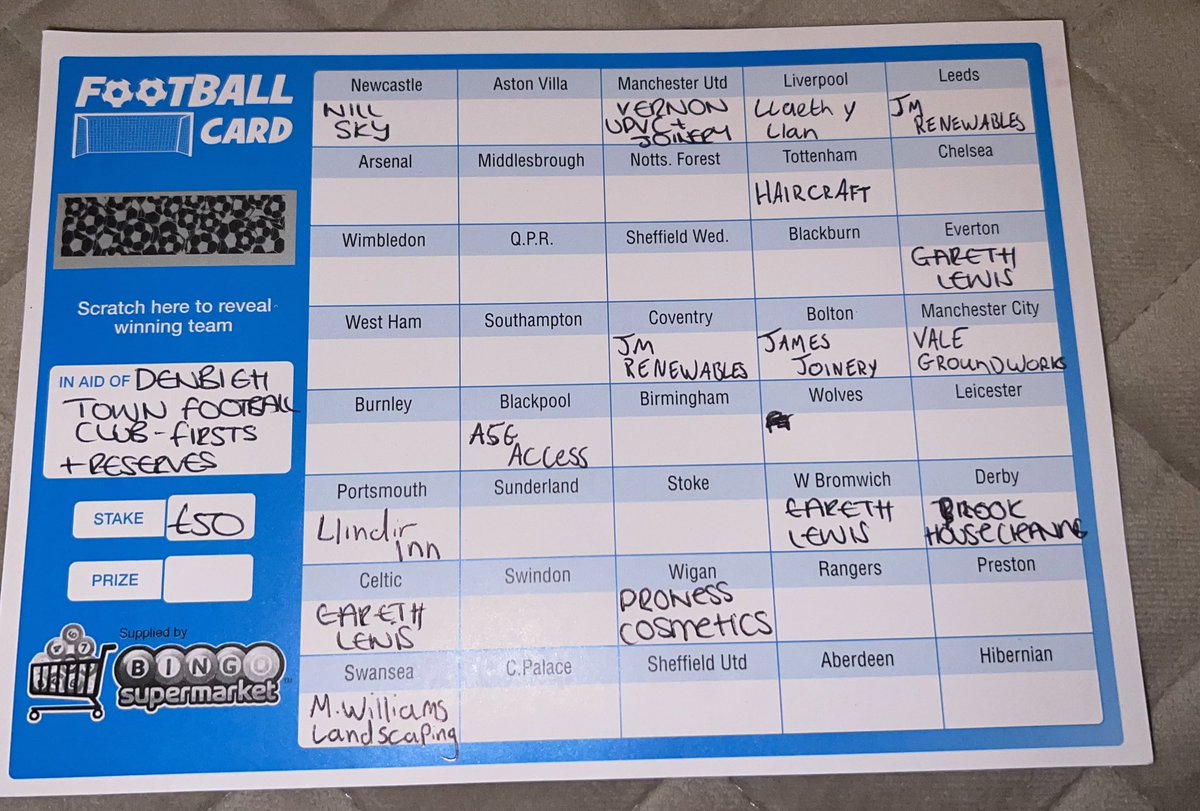 FOOTBALL
CARD
Scratch here to reveal
winning team
IN AID OF DENBIGH
TOWN FOOTBALL
CLUB - FIRSTS
+ RESERVES
STAKE £50
PRIZE
Supplied by
BINGO
supermarket
Newcastle
NILL
SKY
Aston Villa
Manchester Utd
VERNON
UPVC +
JOINERY
Liverpool
Llaeth y
Llan
Leeds
JM
RENEWABLES
Arsenal
Middlesbrough
Notts. Forest
Tottenham
HAIRCRAFT
Chelsea
Wimbledon
Q.P.R.
Sheffield Wed.
Blackburn
Everton
GARETH
LEWIS
West Ham
Southampton
Coventry
JM
RENEWABLES
Bolton
JAMES
JOINERY
Manchester City
VALE
GROUNDWORKS
Burnley
Blackpool
A5G
ACCESS
Birmingham
Wolves
Leicester
Portsmouth
Llindir
inn
Sunderland
Stoke
W Bromwich
GARETH
LEWIS
Derby
BROOK
HOUSE CLEANING
Celtic
GARETH
LEWIS
Swindon
Wigan
PRONESS
COSMETICS
Rangers
Preston
Swansea
M.Williams
Landscaping
C.Palace
Sheffield Utd
Aberdeen
Hibernian